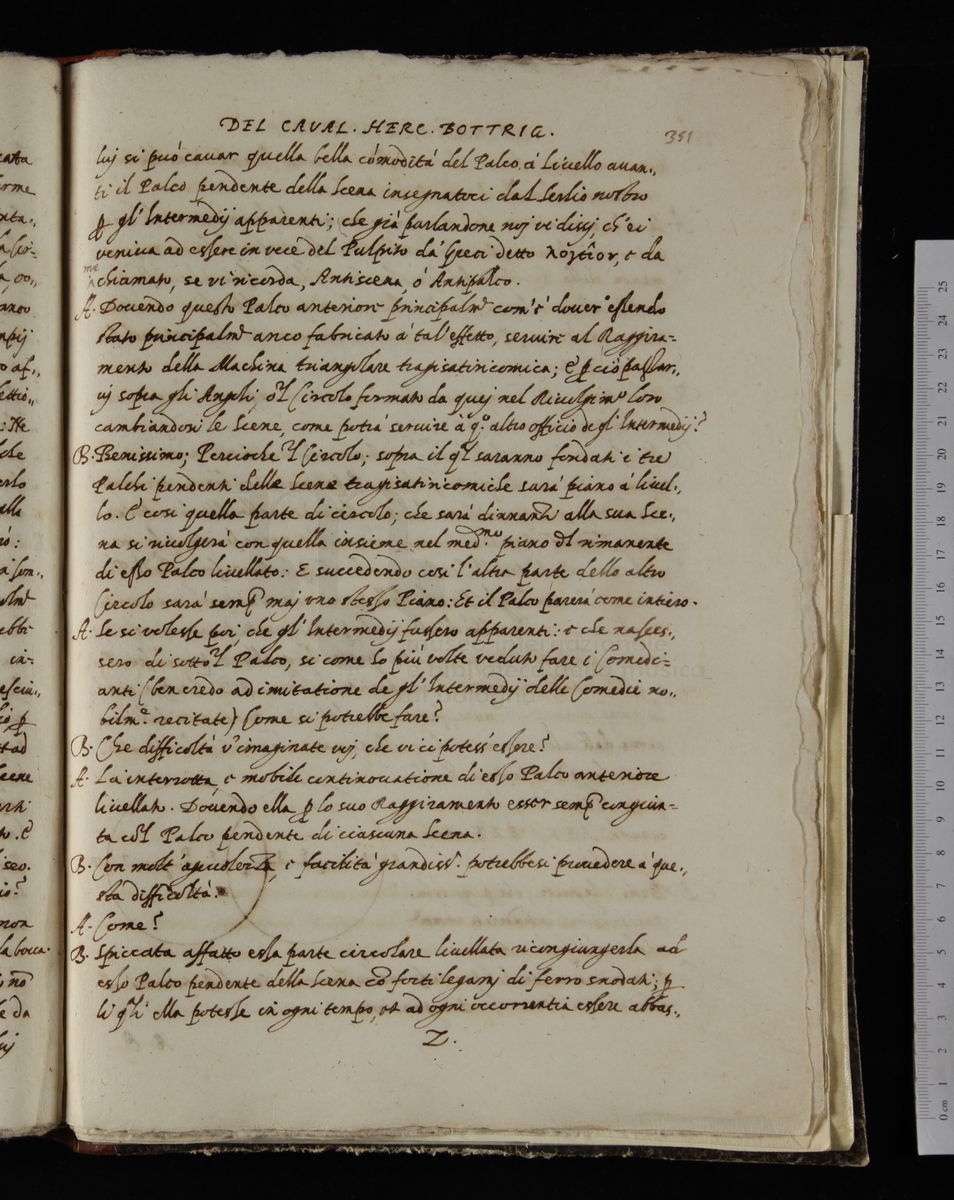 DEL CAVAL. HERC. BOTTRIG.
351
luj si può cavar quella bella cómodità del Palco à Livello auan,,
ti il Palco pendente della Scena insegnatoci dal Serlio nostro
ꝑ gl' Intermedij apparenti; che già parlandone noj vi dissi, ch' ei
veniua ad essere in vece del Pulpito dà Greci detto λογεῖον, e da
me chiamato, se vi ricorda, Antiscena, ò Antipalco.
A. Douendo questo Palco anteriore principalm.te com' è douer' essendo
stato principalm.te anco fabricato à tal' effetto, seruire al Raggira=
mento della Machina triangolare tragisatiricomica; E ꝑ ciò passar,,
uj sopra gli Angoli, ò 'l Circolo formato da quej nel Riuolgim.to loro
cambiandosi le Scene, come potrà seruire à q.o altro officio de gl' Intermedij?
B. Benissimo; Percioche 'l Circolo; sopra il q'l saranno fondati i tre
Palchi pendenti delle Scene tragisatiricomiche sarà piano à liuel,,
lo. E così quella parte di circolo; che sarà dinnanzi alla sua Sce,,
na si riuolgerà con quella insieme nel med.mo piano d'l rimanente
di esso Palco liuellato: E succedendo così l'altra parte dello altro
Circolo sarà semp maj vno stesso Piano: Et il Palco parerà come intiero.
A. Se si volesse poi che gl' Intermedij fussero apparenti: e che nasces,,
sero di sotto 'l Palco, si come hò più volte veduto fare i Comedi=
anti (ben credo ad imitatione de gl' Intermedij delle Comedie no,,
bilm.e recitate) Come si potrebbe fare?
B. Che difficoltà v' imaginate voj, che vi ci potess' essere?
A. La interrotta, e mobile continouatione di esso Palco anteriore
liuellato. Douendo ella ꝑ lo suo Raggiramento esser semp congiun=
ta co'l Palco pendente di ciascuna Scena.
B. Con molt' ageuolezza, e facilità grandiss.a potrebbesi prouedere à que,,
sta difficoltà.
A. Come?
B. Spiccata affatto essa parte circolare liuellata ricongiungerla ad
esso Palco pendente della Scena cō forti legamj di ferro snodati; ꝑ
li q'li ella potesse in ogni tempo, et ad ogni occorrentia essere abbas,,
Z.